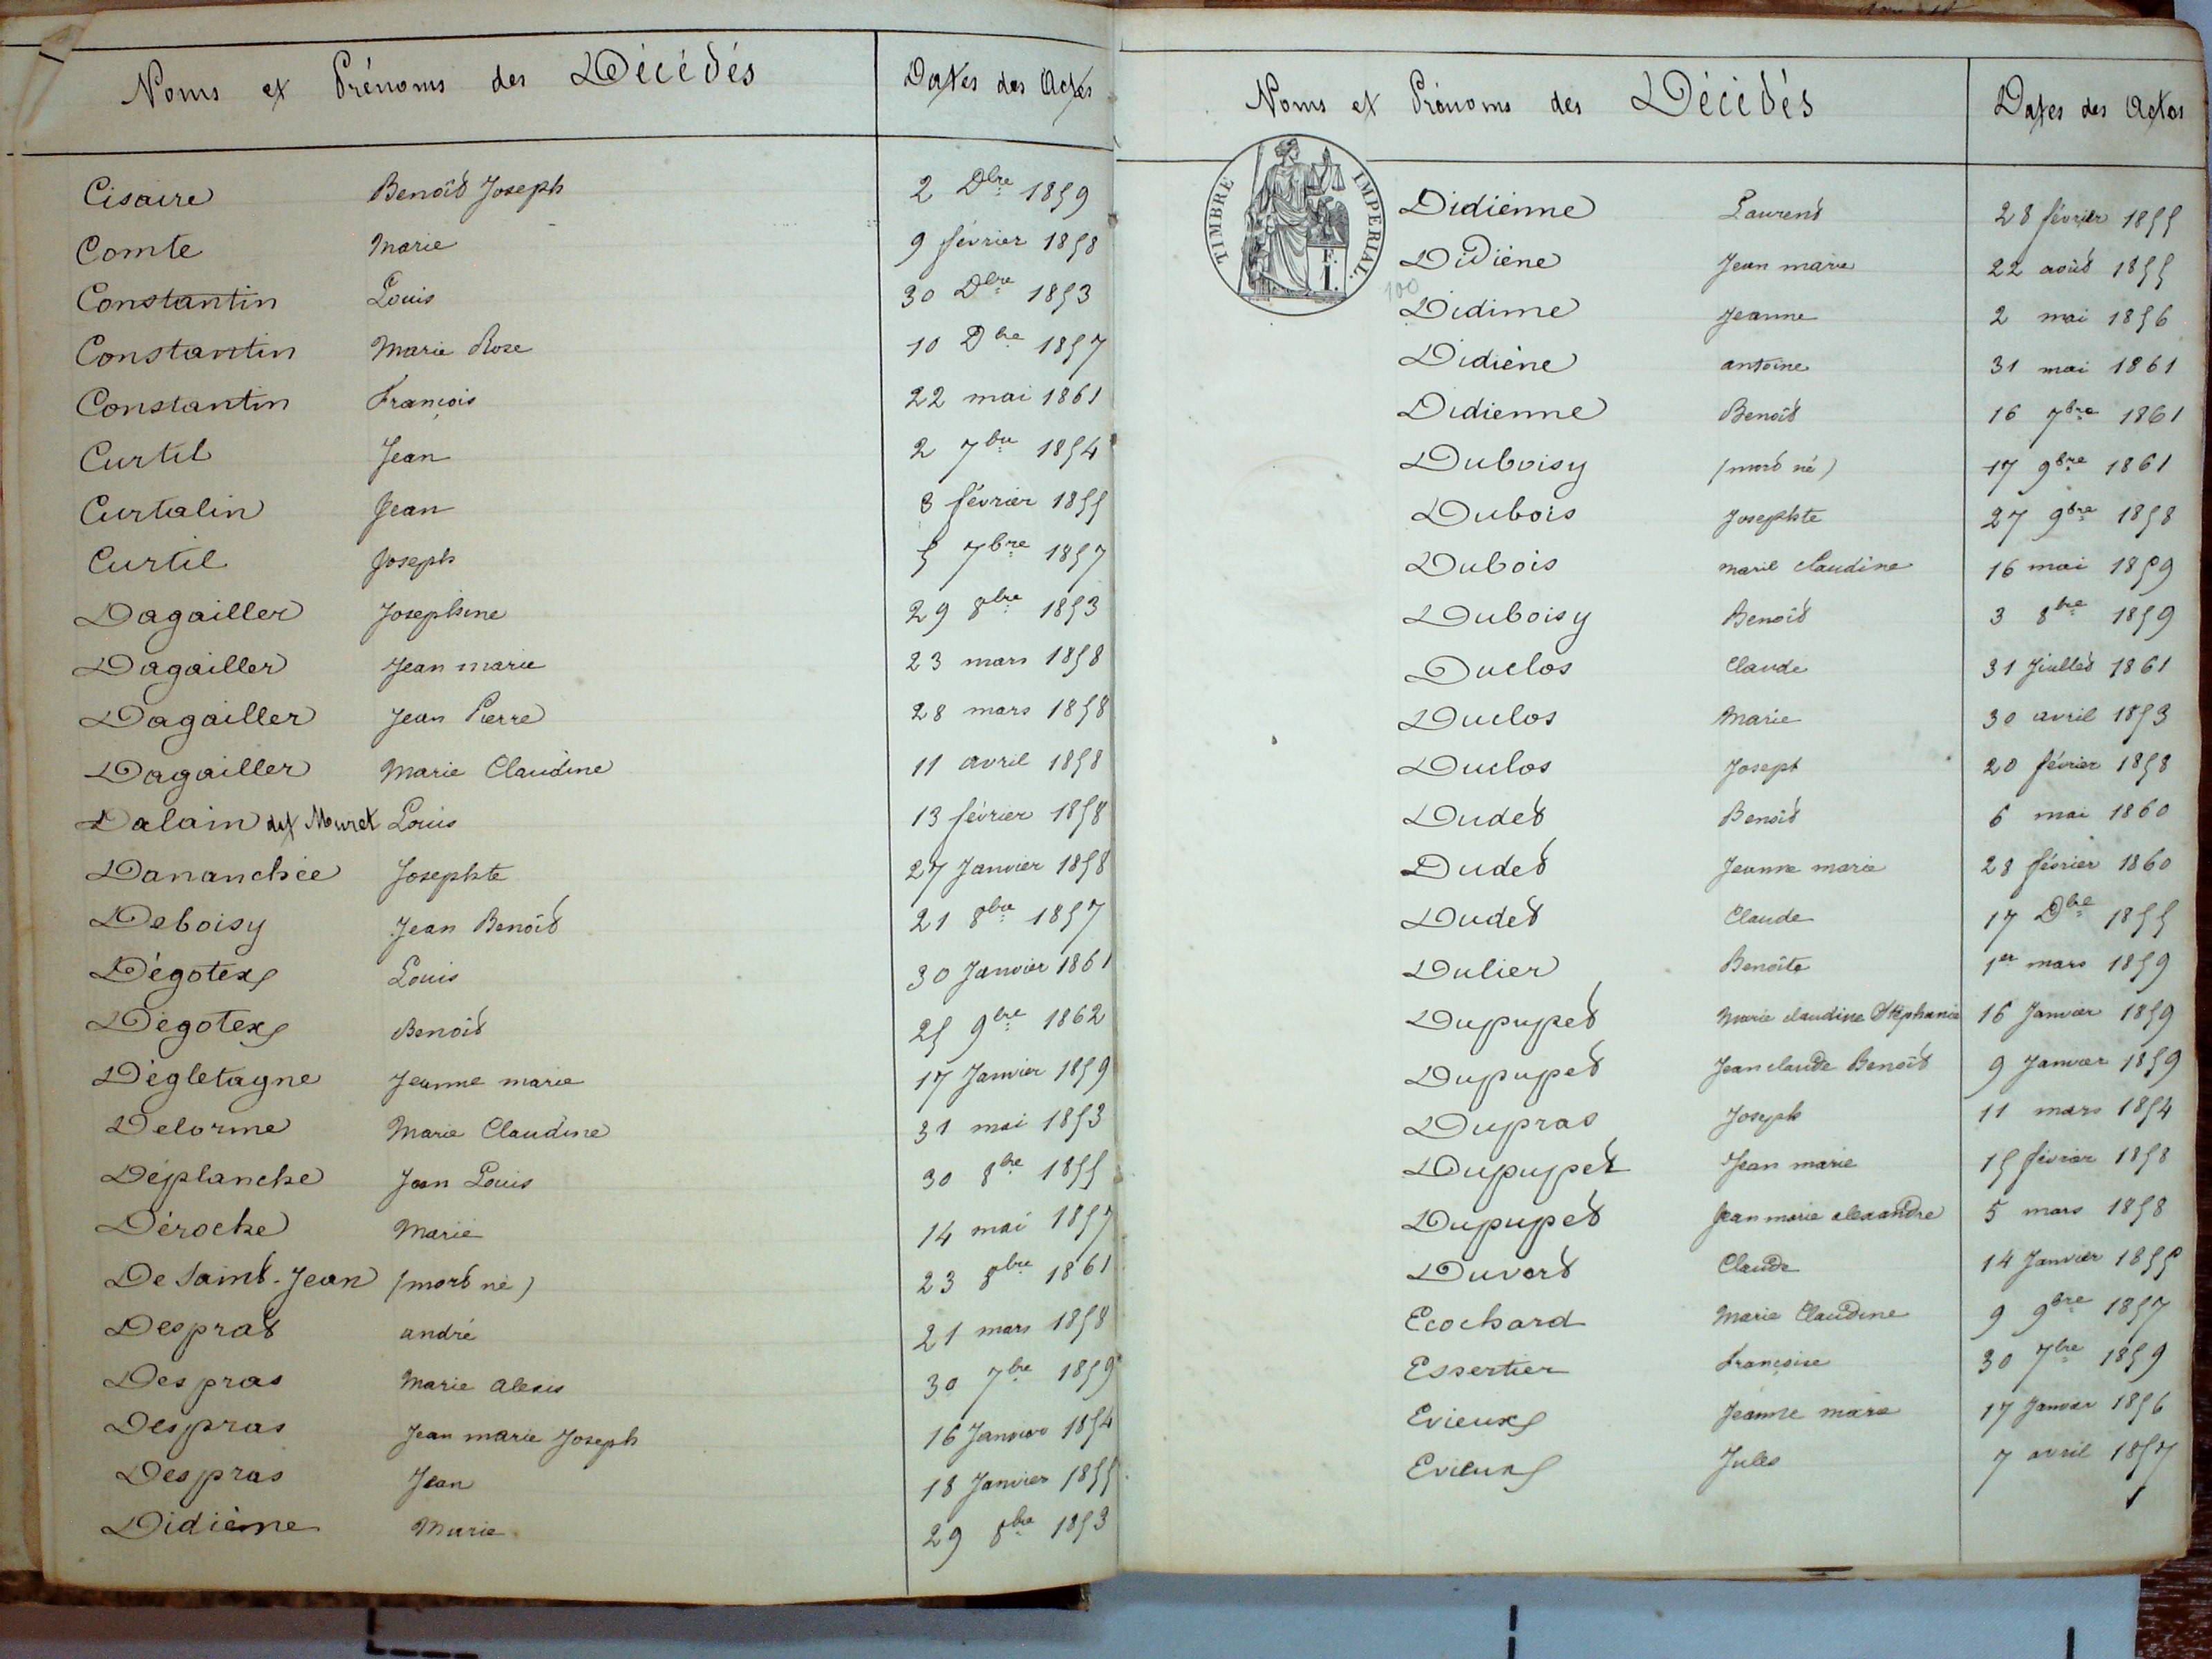 Noms et Prénoms des Décédés Dates des Actes
Cisaire Benoît Joseph 2 Dbre 1859
Comte Marie 9 février 1858
Constantin Louis 30 Dbre 1853
Constantin Marie Rose 10 Dbre 1857
Constantin François 22 mai 1861
Curtil Jean 2 7bre 1854
Curtalin Jean 8 février 1855
Curtil Joseph 5 7bre 1857
Dagailler Josephine 29 8bre 1853
Dagailler Jean marie 23 mars 1858
Dagailler Jean Pierre 28 mars 1858
Dagailler Marie Claudine 11 avril 1858
Dalain det Muret Louis 13 février 1858
Dananchée Josephte 27 Janvier 1858
Deboisy Jean Benoît 21 8bre 1857
Dégotex Louis 30 Janvier 1861
Dégotex Benoît 25 9bre 1862
Dégletagne Jeanne marie 17 Janvier 1859
Delorme Marie Claudine 31 mai 1853
Déplanche Jean Louis 30 8bre 1855
Déroche Marie 14 mai 1857
De Saint-Jean (mort né) 23 8bre 1861
Desprat andré 21 mars 1858
Despras Marie alexis 30 7bre 1859
Despras Jean marie Joseph 16 Janvier 1854
Despras Jean 18 Janvier 1855
Didième Marie 29 8bre 1853
Noms et Prénoms des Décédés Dates des Actes
TIMBRE IMPERIAL.
F. I.
100
Didiénne Laurent 28 février 1855
Didiène Jean marie 22 août 1855
Didime Jeanne 2 mai 1856
Didiène antoine 31 mai 1861
Didienne Benoît 16 7bre 1861
Duboisy (mort né) 17 9bre 1861
Dubois Josephte 27 9bre 1858
Dubois marie claudine 16 mai 1859
Duboisy Benoît 3 8bre 1859
Duclos Claude 31 Juillet 1861
Duclos Marie 30 avril 1853
Duclos Joseph 20 février 1858
Dudet Benoît 6 mai 1860
Dudet Jeanne marie 28 février 1860
Dudet Claude 17 Dbre 1855
Dulier Benoîte 1er mars 1859
Dupupet Marie claudine Stéphanie 16 Janvier 1859
Dupupet Jean claude Benoît 9 Janvier 1859
Dupras Joseph 11 mars 1854
Dupupet Jean marie 15 février 1858
Dupupet Jean marie alexandre 5 mars 1858
Duvert Claude 14 Janvier 1855
Ecochard Marie Claudine 9 9bre 1857
Essertier Françoise 30 7bre 1859
Evieux Jeanne marie 17 Janvier 1856
Evieux Jules 7 avril 1857